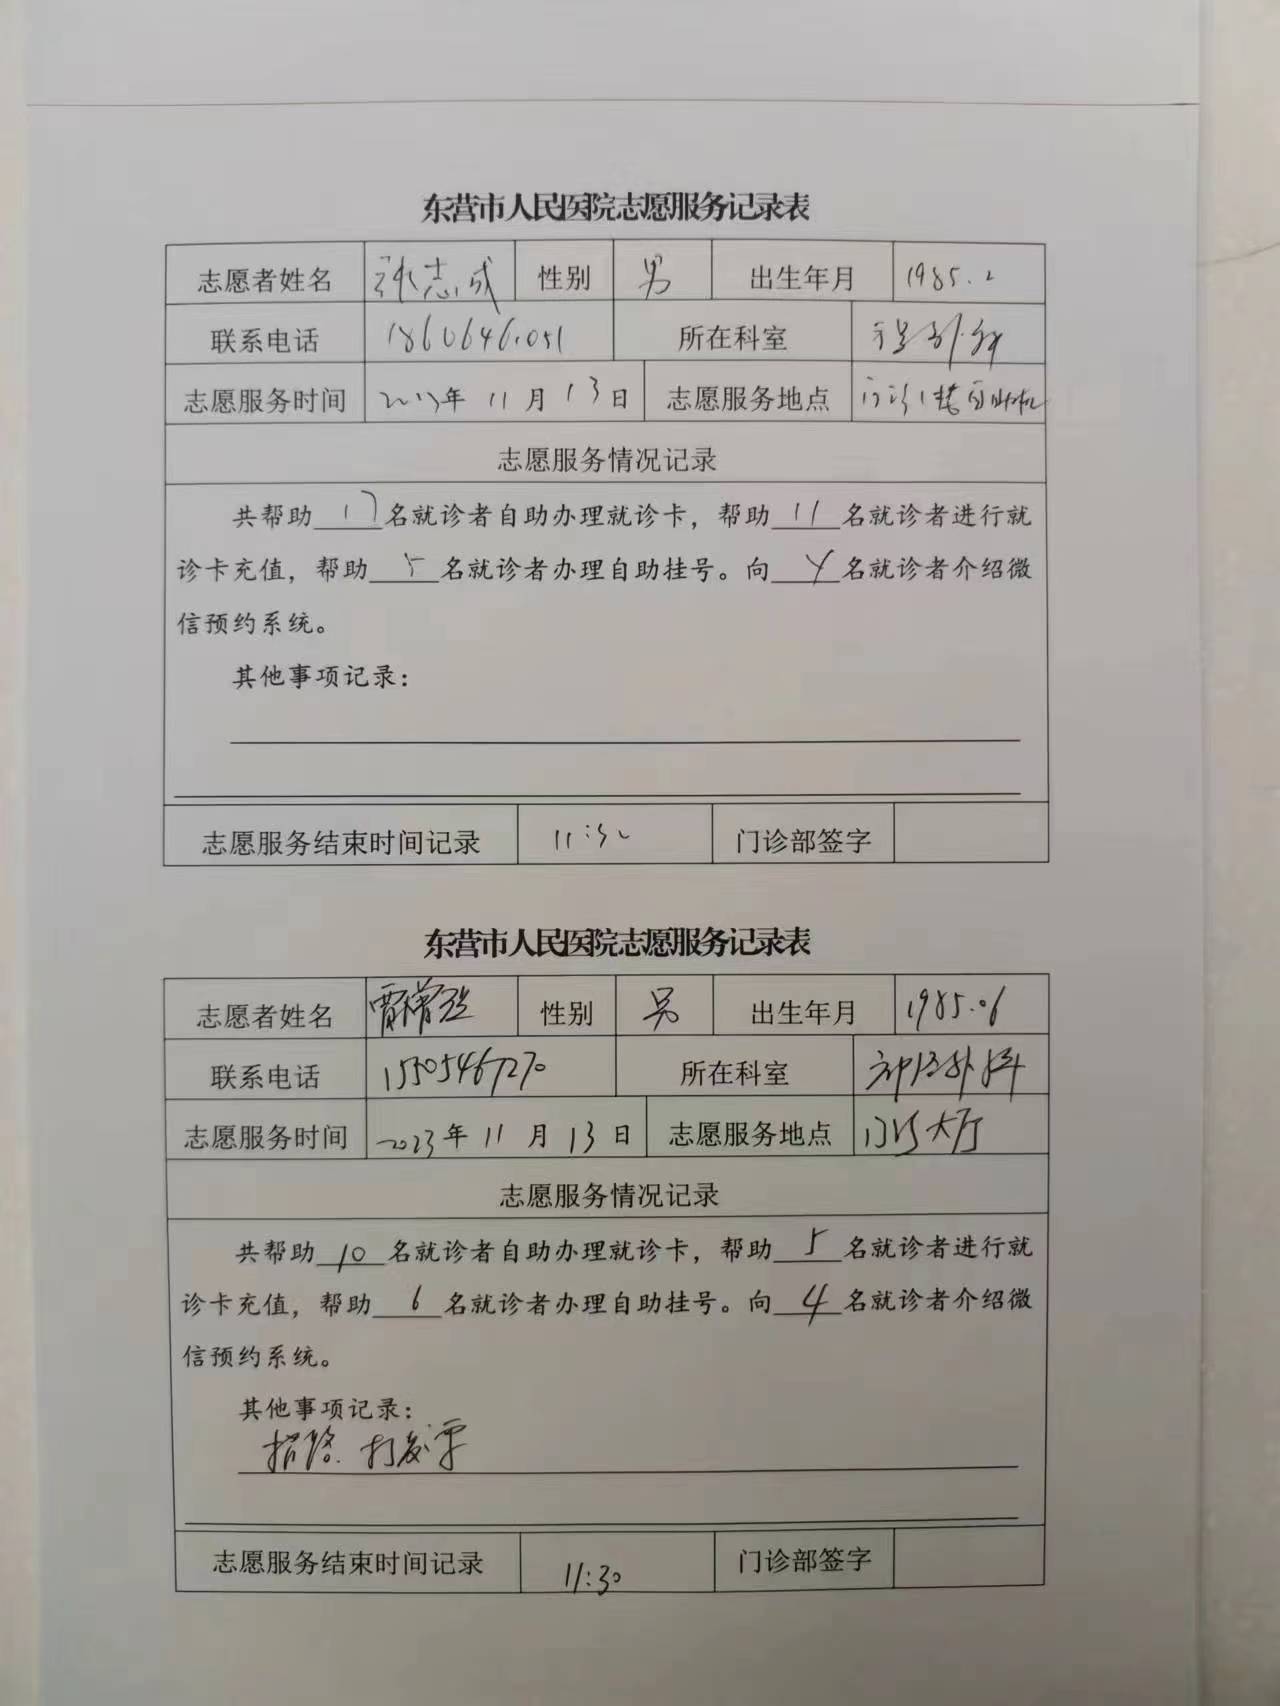 东营市人民医院志愿服务记录表
志愿者姓名 张志成 性别 男 出生年月 1985.2
联系电话 所在科室
志愿服务时间 2023年 11 月 13 日 志愿服务地点 门诊1楼自助机
志愿服务情况记录
共帮助 17 名就诊者自助办理就诊卡，帮助 11 名就诊者进行就
诊卡充值，帮助 5 名就诊者办理自助挂号。向 4 名就诊者介绍微
信预约系统。
其他事项记录：
志愿服务结束时间记录 11:30 门诊部签字
东营市人民医院志愿服务记录表
志愿者姓名 贾 性别 男 出生年月 1985.06
联系电话 15505467270 所在科室 神经外科
志愿服务时间 2023年 11 月 13 日 志愿服务地点 门诊大厅
志愿服务情况记录
共帮助 10 名就诊者自助办理就诊卡，帮助 5 名就诊者进行就
诊卡充值，帮助 6 名就诊者办理自助挂号。向 4 名就诊者介绍微
信预约系统。
其他事项记录：
指路. 打发票
志愿服务结束时间记录 11:30 门诊部签字